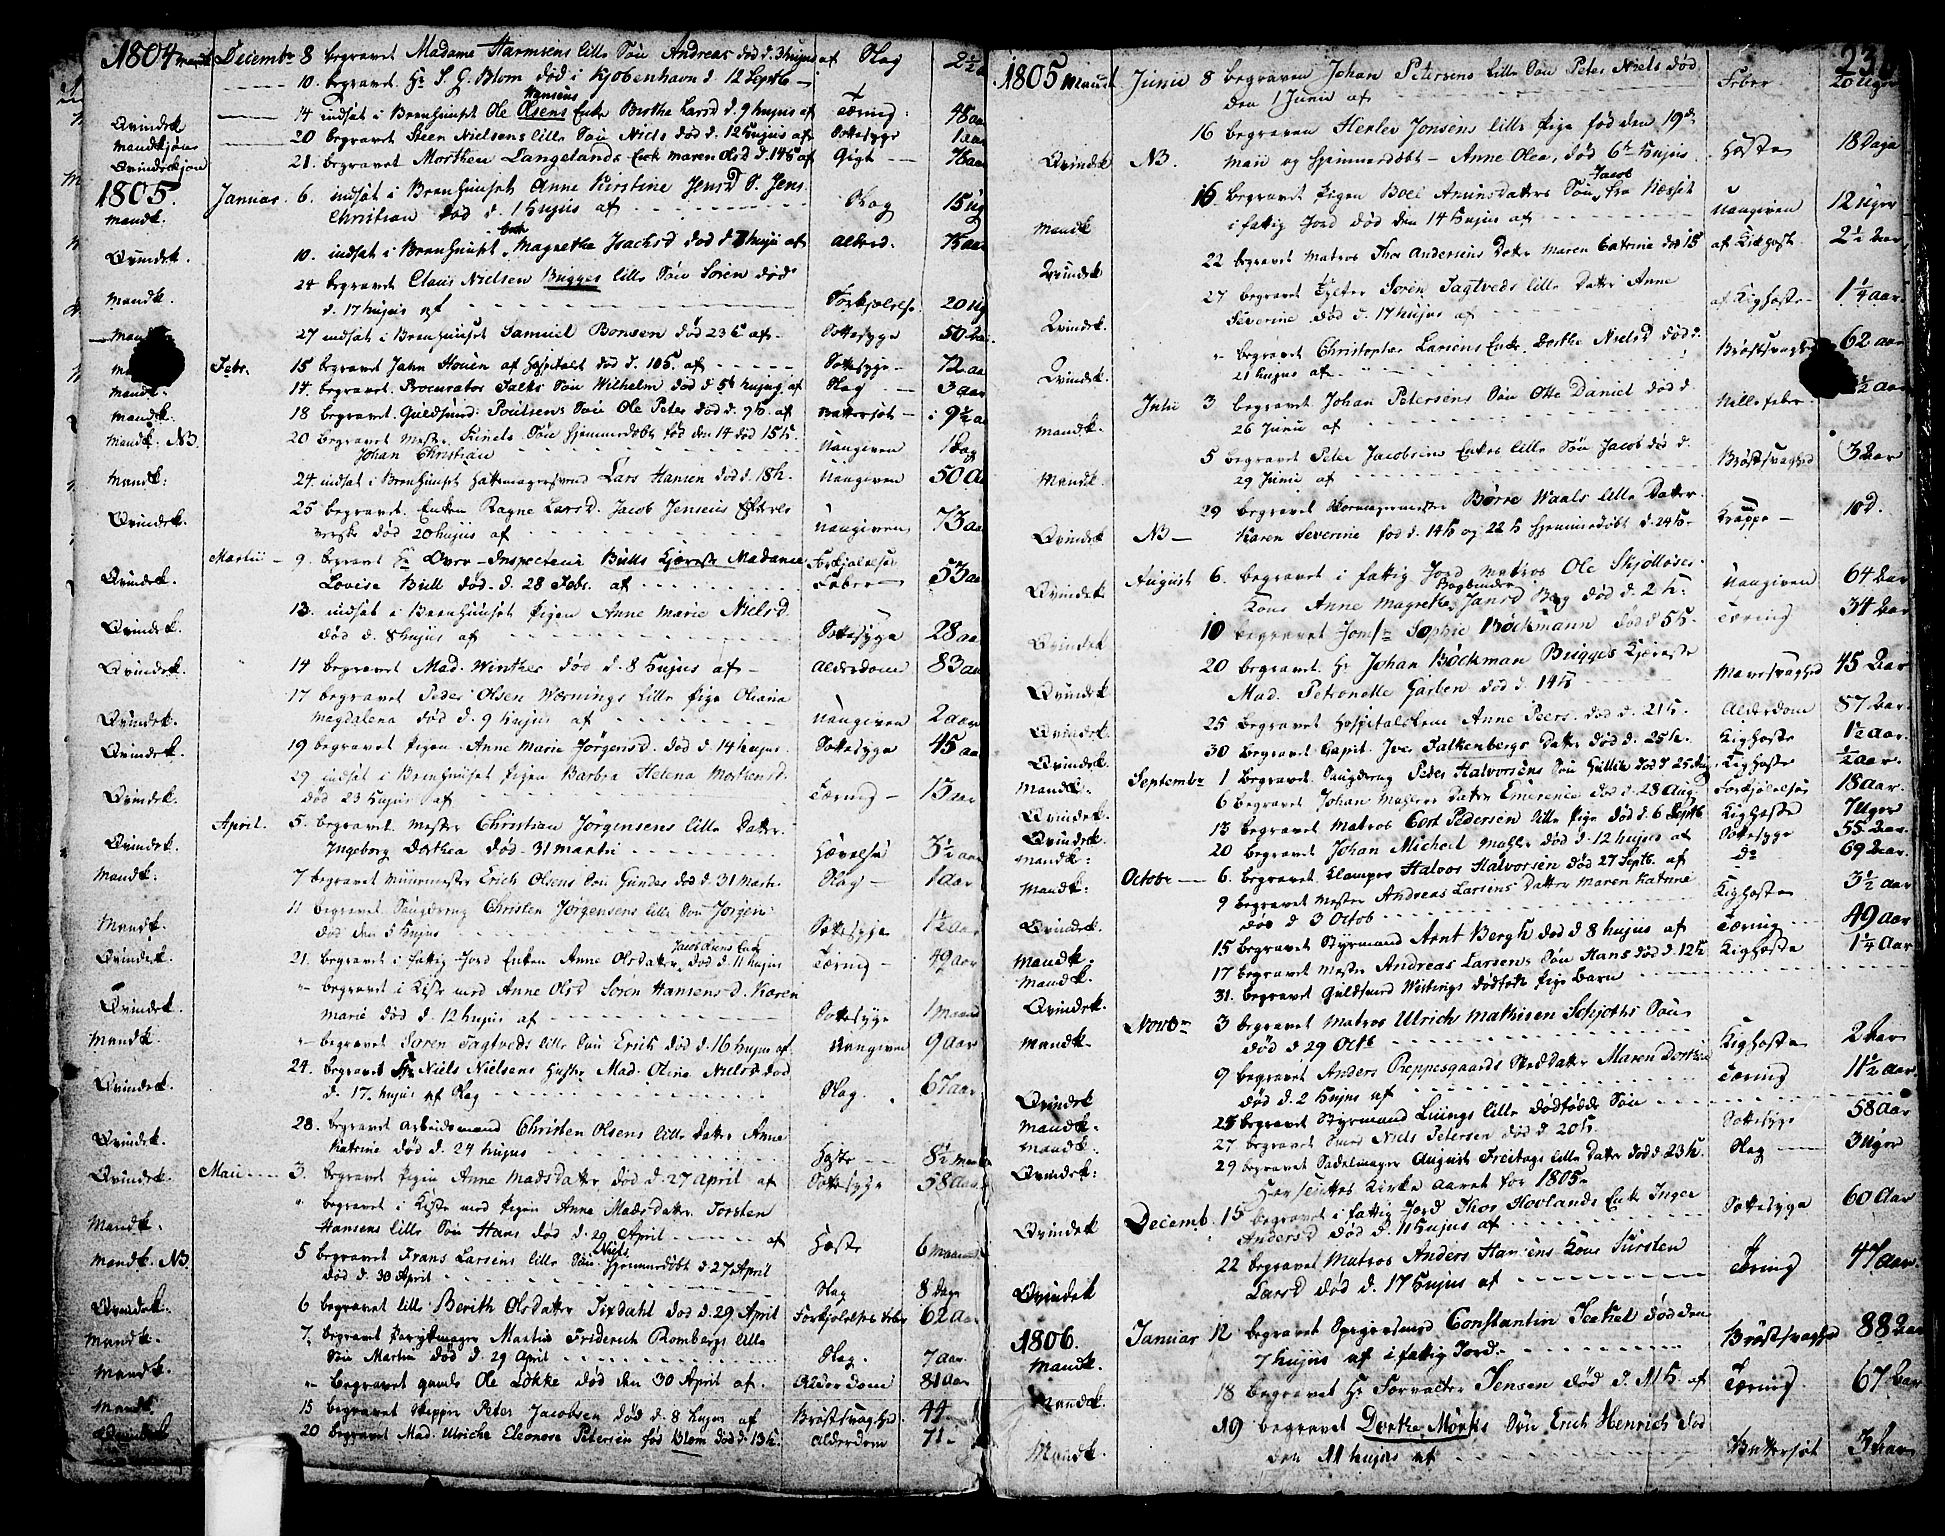 1804 Decembr 8 begravet Madame Harmsens lille Søn Andreas død d. 3 hujus af Slag 2½
10. begravet Hr S. G. Blom død i Kjøbenhavn d. 12 Septb
14 indsat i Brenhuuset Ole Olsens Hansens Enke Birthe Larsd d. 9 hujus af Tæring 48 aar
Qvindek
20 begravet Steen Nielsens lille Søn Niels død d. 12 hujus af Sottesyge 1 aar
Mandkjøn
21. begravet Morthen Langelands Enke Maren Olsd d. 14 h af Gigt 76 aar
Qvindekjøn
1805. Januar 6. indsat i Brenhuuset Anne Kirstine Jensd S. Jens
Mandk. Christian død d. 1 hujus af Slag 15 ug
Qvindek. 10. indsat i Brenhuuset Magrethe Isachsd død d. 7 huji af Alderd. 75 aar
24 begravet Claus Nielsen Brygges lille Søn Søren død
Mandk. d. 17 hujus af Forkjølelse 20 ug
Mandk 27 indsat i Brenhuuset Samuel Bonsen død 23 h af Sottesyge 50 aar
Febr. 15 begravet Jahn Houen af Hospitalet død d. 10 h. af Sottesyge 72 aar
Mandk. 14 begravet Procurator Falks Søn Wilhelm død d. 5 h hujus af Slag 3 aar
Mandk. 18 begravet Guldsmed Poulsens Søn Ole Peter død d. 9 h. af Vattersot 9½ aar
Mandk. NB. 20 begravet Mester Søn hjemmedøbt fød den 14 død 15 h.
Johan Christian uangiven 1 Dag
Mandk: 24 indsat i Brenhuuset Hattemagersvend Lars Hansen død d. 18 h. uangiven 50 Aar
25 begravet Enken Ragne Larsd. Jacob Jensens Efterle
Qvindek. verske død 20 hujus af uangiven 73 aar
Martii 9. begravet Hr Over-Inspecteur Bulls Kjæreste Madame Forkjølelses
Qvindek. Lovise Bull død d. 28 Febr. af Feber 53 aar
13. indsat i Brenhuuset Pigen Anne Marie Nielsd
Qvindek. død d. 8 hujus af Sottesyge 28 aar
Qvindek. 14 begravet Mad. Winther død d. 8 hujus af Alderdom 83 aar
17 begravet Peder Olsen Wærnings lille Pige Oliana
Qvindek. Magdalena død d. 9 hujus af uangiven 2 aar
Qvindek. 19 begravet Pigen Anne Marie Jørgensd. død d. 14 hujus Sottesyge 45 aar
29 indsat i Brenhuuset Pigen Barbra Helena Mortensd.
Qvindek. død 23 hujus af Tæring 15 aar
April. 5. begravet Mester Christian Jørgensens lille Datter
Qvindek. Ingeborg Dorthea død 31 Martii Hævelse 3½ aar
Mandk. 7 begravet Muurmester Erich Olsens Søn Gunder død d. 31 Marti Slag 1 aar
11 begravet Saugdreng Christen Jørgensens lille Søn Jørgen
Mandk. død den 5 hujus Sottesyge 1½ aar
Qvindek. 21. begravet i fattig Jord Enken Anne Olsdatter Jacob Olsens Enke død d. 11 hujus Tæring 49 aar
" begravet i Kiste med Anne Olsd Søren Hansens d. Karen
Qvindek. Marie død d. 12 hujus af Sottesyge 1 Maaned
Mandk. " begravet Søren Sagtveds lille Søn Erich død d. 16 hujus af Uangiven 9 Aar
24. begravet Hr Niels Nielsens Huster Mad. Oline Nielsd død
Qvindek. d. 17 hujus af Slag Slag. 67 aar
28. begravet Arbeidsmand Christen Olsens lille Datter Anne
Qvindek. Katrine død d. 24 hujus Hoste 8½ Maaned
Qvindek. Maii 3. begravet Pigen Anne Madsdatter død d. 27 April af Sottesyge 58 Aar
" begravet i Kiste med Pigen Anne Madsdatter Torsten
Mandk. Hansens lille Søn Hans død d. 29 April af Hoste 6 Maaneder
Mandk. NB. 5 begravet Frans Larsens lille Søn Niels hjemmedøbt d. 27 April
død d. 30 April Slag 8 Dage
Qvindek. 6 begravet lille Berith Olsdatter død d. 29 April Forkjølelses Feber 62 Aar
7. begravet Martin Friderich Rombergs lille
Mandk. Søn Martin død d. 29 April Slag. 7 Aar
Mandk. " begravet gamle Ole Løkke død den 30 April af Alderdom 81 Aar
Mandk. 15 begravet Skipper Peter Jacobsen død d. 8 hujus af Brøstsvaghed 44
Qvindek 20 begravet Mad. Ulriche Eleonore Petersen fød Blom død d. 13 h. Alderdom 71
1805 Junii 8 begraven Johan Petersens lille Søn Peter Niels død
den 1 Junii af Feber 20 Uger
16 begraven Herlev Jonsens lille Pige fød den 19 de
Qvindek NB. Mai og hjemmedøbt Anne Olea, død 6te hujus Hoste 18 Dage
16. begravet Pigen Boel Amundsdatters Søn Jacob fra Næsset
Mandk i fattig Jord død den 14 hujus af uangiven 12 uger
Qvindek 22 begravet Matros Thor Andersens Datter Maren Catrine død 15 af Kikhoste 2½ Aar
27 begravet Søren Sagtveds lille Datter Anne
Qvindek. Severine død d. 17 hujus af af Kighoste 1¼ aar
" begravet Christopher Larsens Enke Dorthe Nielsd død d.
Qvindek. 21 hujus af Brøstsvaghed 62 aar
Julii 3 begravet Johan Petersens Søn Otto Daniel død d
Mandk. 26 Junii af Nellefeber ½ aar
5 begravet Peter Jacobsens Enkes lille Søn Jacob død d.
Mandk. 29 Junii af Brøstsvaghed 3 Aar
29 begravet Børre Waals lille Datter
Qvindek NB Karen Severine fød d. 14 h og 22 h hjemmedøbt d. 24 h. 10 D.
Qvindek August 6. begravet i fattig Jord Matros Ole Skjølløses
Kone Anne Magrethe Jansd død d. 2 h. uangiven 64 Aar
Qvindek 10 begravet Jomfr Sophie Bøckmann død d 5 h. Tæring 34 Aar
20 begravet Hr Johan Bøckman Brygges Kjæreste
Qvindek. Mad. Petronelle Garben død d 14 h Mavesvaghed 45 Aar
Qvindek. 25 begravet Hospitalslem Anne Peers. død d. 21 h. Alderdom 87 Aar.
Qvindek. 30 begravet Capit. Iver Falkenbergs Datter død d. 25 h. Kighoste 1½ Aar.
Mandk. Septembr 1 begravet Saugdreng Peder Halvorsens Søn Gullik død d. 25 Aug Kighoste ½ aar.
Qvindek. 6 begravet Johan Møllers Datter Emerence død d. 28 Aug. Forkjølelse 18 aar.
Qvindek. 13 begravet Matros Cort Pedersen lille Pige død d. 6 Septb Kighoste 7 Uger
Mandk. 20 begravet Johan Micheil Møller død d. 12 hujus af Sottesyge 55 Aar.
Mandk. Octobr 6. begravet Klamper Halvor Halvorsen død 27 Septb. af Do 69 Aar.
9 begravet Mester Andreas Larsens Datter Maren Katrine
Qvindek. død d 3 Octob Kighoste 3½ aar
Mandk. 15 begravet Styrmand Arnt Bergh død d 8 hujus af Tæring 49 aar
Mandk. 17 begravet Mester Andreas Larsens Søn Hans død d. 12 h Kighoste 1¼ Aar
Qvindek. 31. begravet Guldsmed Wistings dødfødt Pige Barn
Novbr 3 begravet Matros Ulrich Mathisen Schjøths Søn
Mandk. død d 29 Octb Kighoste 2 Aar
9 begravet Anders Preppesgaards Sted Datter Maren Dorthea
Qvindek død d. 2 hujus af Tæring 11½ Aar
Mandk. 25 begravet Styrmand Luings lille dødfødde Søn
Mandk. 27 begravet Smed Niels Petersen død d. 20 h. Sottesyge 58 Aar
Qvindek: 29 begravet Sadelmager August Freitags lille Datter død d. 23 h. Slag 3 uger
Kirke Aaret for 1805.
Decemb. 15 begravet i fattig Jord Thor Hovlands Enke Inger
Qvindek Andersd død d. 11 hujus af Sottesyge 60 Aar
22 begravet Matros Anders Hansens Kone Kirsten
Qvindek Larsd død d. 17 hujus af Tæring 47 aar.
1806. Januar 12 begravet Constantin Teckel død den
Mandk. 7 hujus af i fattig Jord. Brøstsvaghed 88 Aar
Mandk. 18 begravet Hr Forvalter Jensen død d. 11 h af Tæring 67 Aar
19 begravet Dorthe Mørks Søn Erich Henrich død
Mandk. den 11 hujus af Vattersot 3 Aar